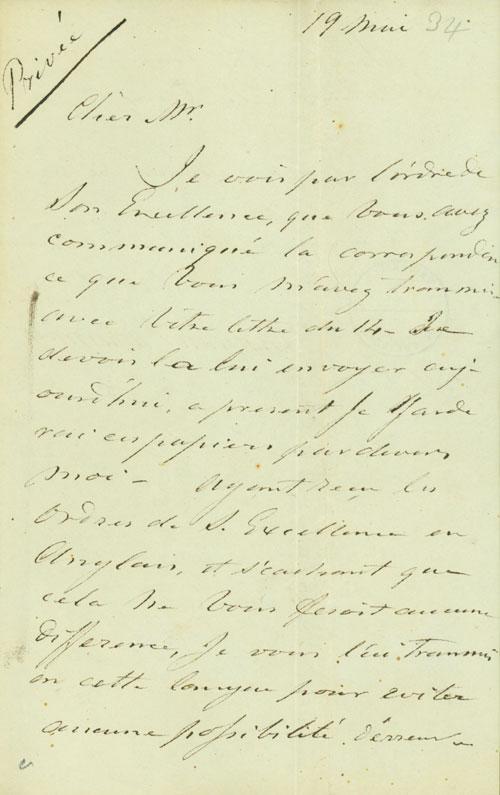 19 Mai 34
Privée
Cher Mr.
Je vois par l'ordre de
Son Excellence, que Vous avez
communiqué la correspondan
ce que Vous m'avez transmis
avec Votre lettre du 14- Je
devois la lui envoyer auj-
ourd'hui, a present Je garde
rai ces papiers par devers
moi - Ayant reçu les
Ordres de S. Excellence en
Anglais, et s'cachant que
cela ne Vous feroit aucune
difference, Je vous l'ai transmis
en cette langue pour eviter
aucune possibilité d'erreur